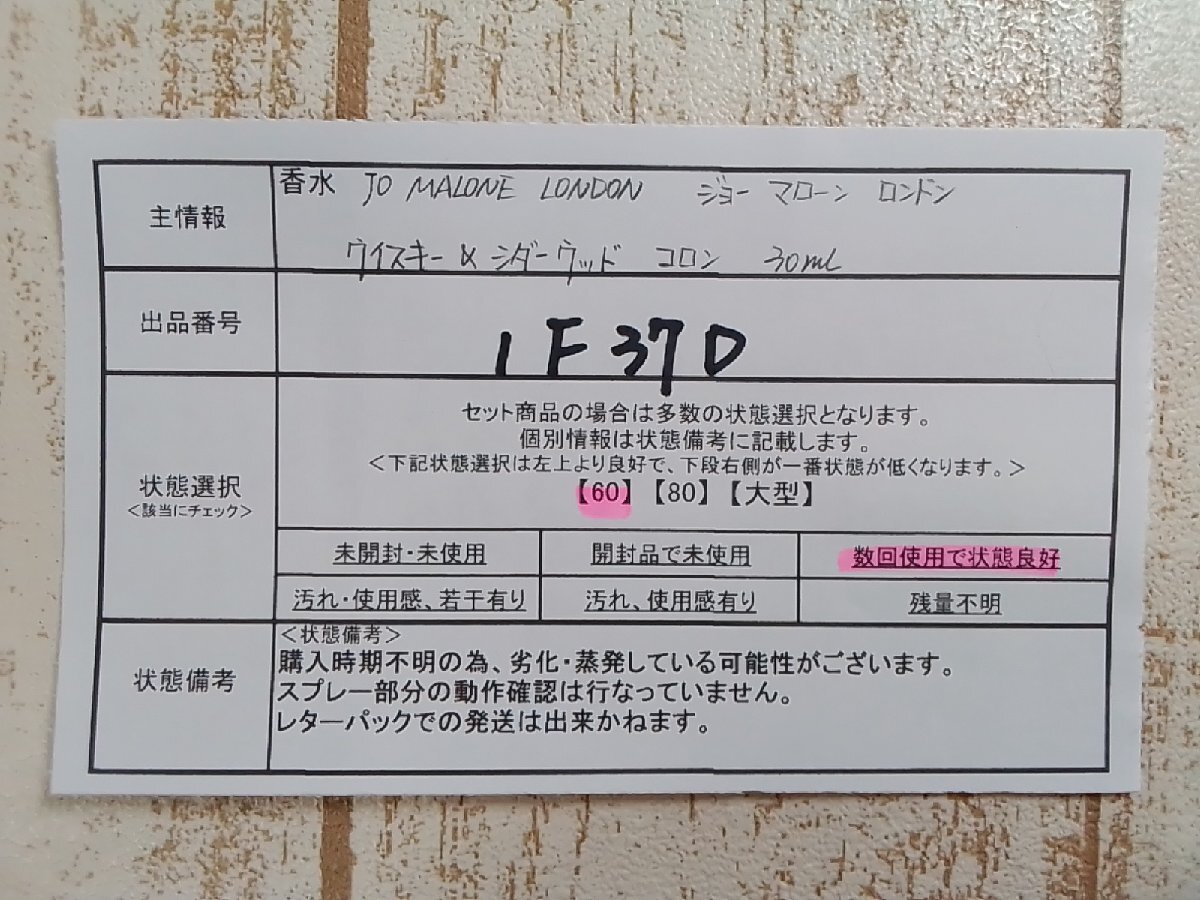 主情報
香水 JO MALONE LONDON ジョー マローン ロンドン
ウイスキー & シダーウッド コロン 30mL
出品番号
1F37D
状態選択
<該当にチェック>
セット商品の場合は多数の状態選択となります。
個別情報は状態備考に記載します。
<下記状態選択は左上より良好で、下段右側が一番状態が低くなります。>
【60】【80】【大型】
未開封・未使用 開封品で未使用 数回使用で状態良好
汚れ・使用感、若干有り 汚れ、使用感有り 残量不明
状態備考
<状態備考>
購入時期不明の為、劣化・蒸発している可能性がございます。
スプレー部分の動作確認は行なっていません。
レターパックでの発送は出来かねます。